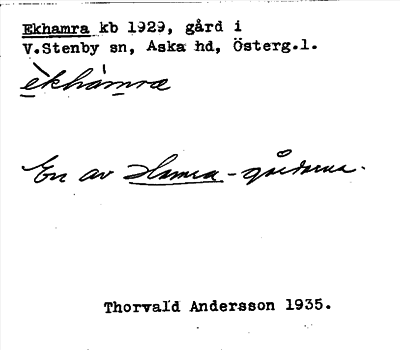 Ekhamra kb 1929, gård i
V.Stenby sn, Aska hd, Österg.l.
èkhàmra
En av Hamra-gårdarna.
Thorvald Andersson 1935.